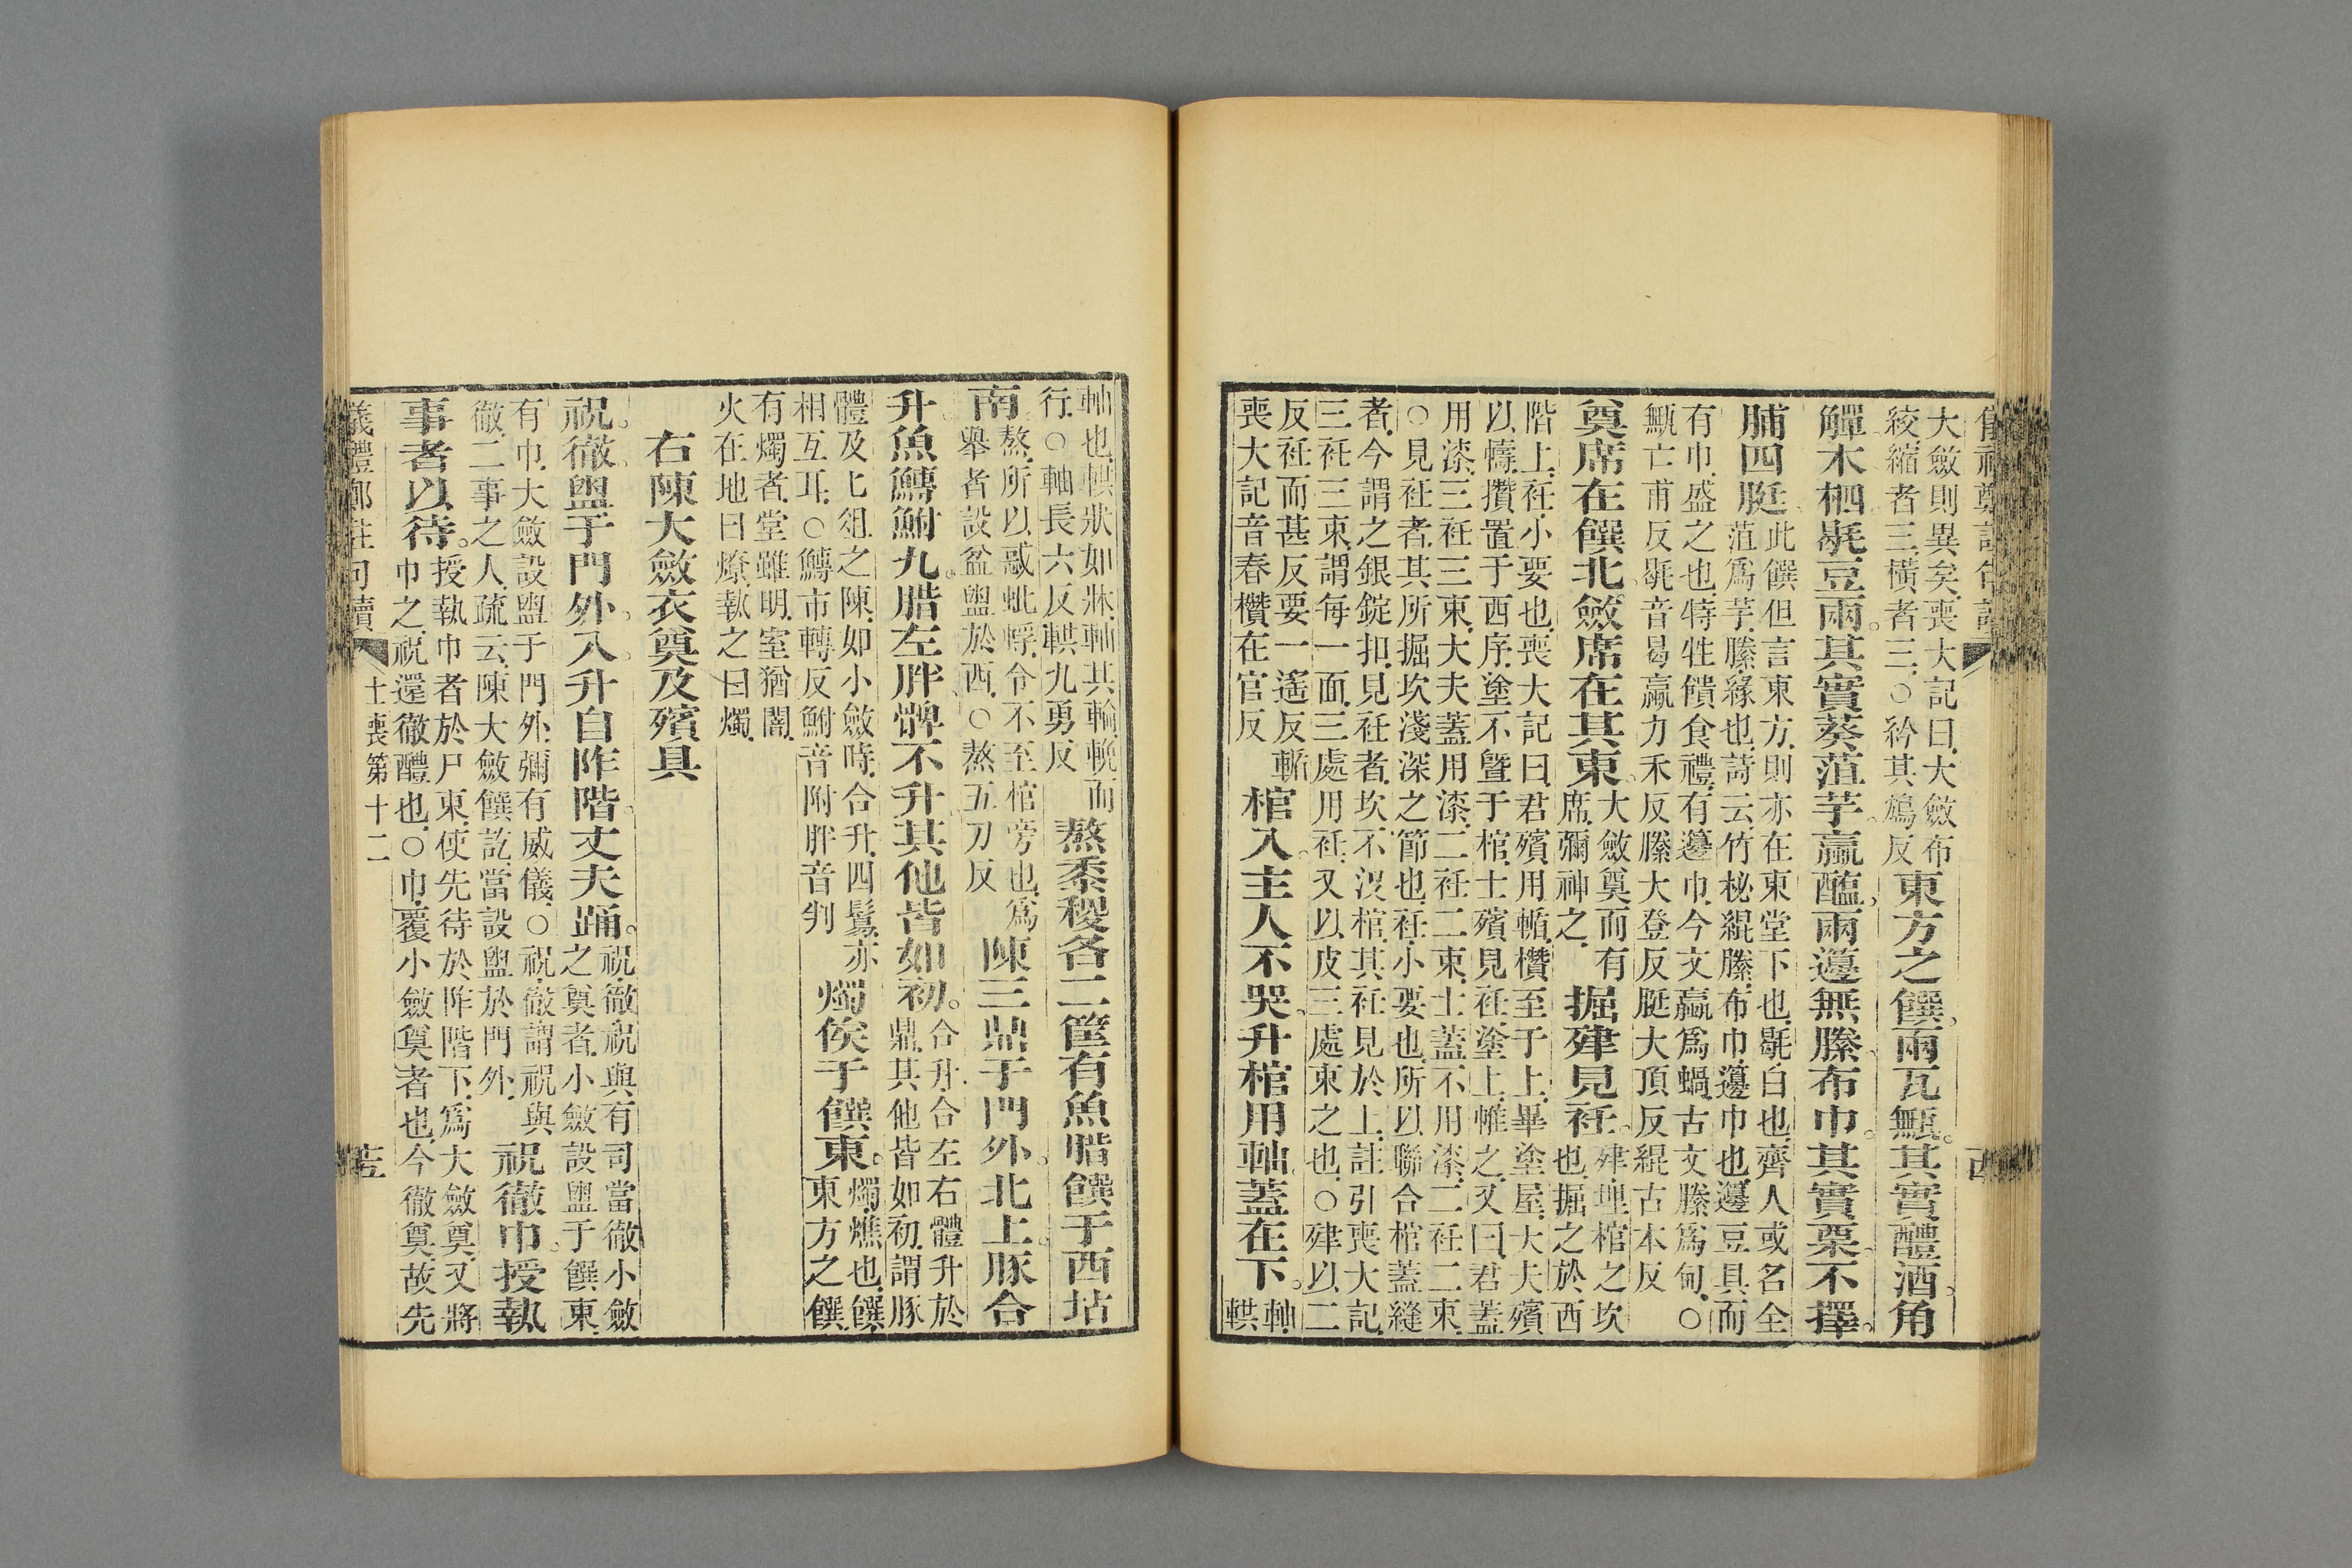 大斂則異矣喪大記曰大斂布
絞縮者三橫者三○紟其鴆反
東方之饌兩瓦甒其實醴酒角
觶木柶毼豆兩其實葵菹芋蠃醢兩籩無縢布巾其實栗不擇
脯四脡
此饌但言東方則亦在東堂下也毼白也齊人或名全
菹爲芋縢緣也詩云竹柲緄縢布巾籩巾也籩豆具而
有巾盛之也特牲饋食禮有籩巾今文蠃爲蝸古文縢爲甸○
甒亡甫反毼音曷蠃力禾反縢大登反脡大頂反緄古本反
奠席在饌北斂席在其東
大斂奠而有
席彌神之
掘肂見衽
肂埋棺之坎
也掘之於西
階上衽小要也喪大記曰君殯用輴欑至于上畢塗屋大夫殯
以幬欑置于西序塗不曁于棺士殯見衽塗上帷之又曰君蓋
用漆三衽三束大夫蓋用漆二衽二束士蓋不用漆二衽二束
○見衽者其所掘坎淺深之節也衽小要也所以聯合棺蓋縫
者今謂之銀錠扣見衽者坎不沒棺其衽見於上註引喪大記
三衽三束謂每一面三處用衽又以皮三處束之也○肂以二
反衽而甚反要一遙反輴
喪大記音春欑在官反
棺入主人不哭升棺用軸蓋在下
軸
輁
軸也輁狀如牀軸其輪輓而
行○軸長六反輁九勇反
熬黍稷各二筐有魚腊饌于西坫
南
熬所以惑蚍蜉令不至棺旁也爲
舉者設盆盥於西○熬五刀反
陳三鼎于門外北上豚合
升魚鱄鮒九腊左胖髀不升其他皆如初
合升合左右體升於
鼎其他皆如初謂豚
體及匕俎之陳如小斂時合升四鬄亦
相互耳○鱄市轉反鮒音附胖音判
燭俟于饌東
燭燋也饌
東方之饌
有燭者堂雖明室猶闇
火在地曰燎執之曰燭
右陳大斂衣奠及殯具
祝徹盥于門外入升自阼階丈夫踊
祝徹祝與有司當徹小斂
之奠者小斂設盥于饌東
有巾大斂設盥于門外彌有威儀○祝徹謂祝與
徹二事之人疏云陳大斂饌訖當設盥於門外
祝徹巾授執
事者以待
授執巾者於尸東使先待於阼階下爲大斂奠又將
巾之祝還徹醴也○巾覆小斂奠者也今徹奠故先
士喪第十二